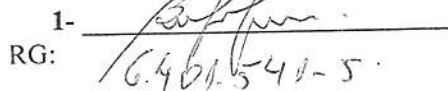 1-
RG: 6.401.541-5.